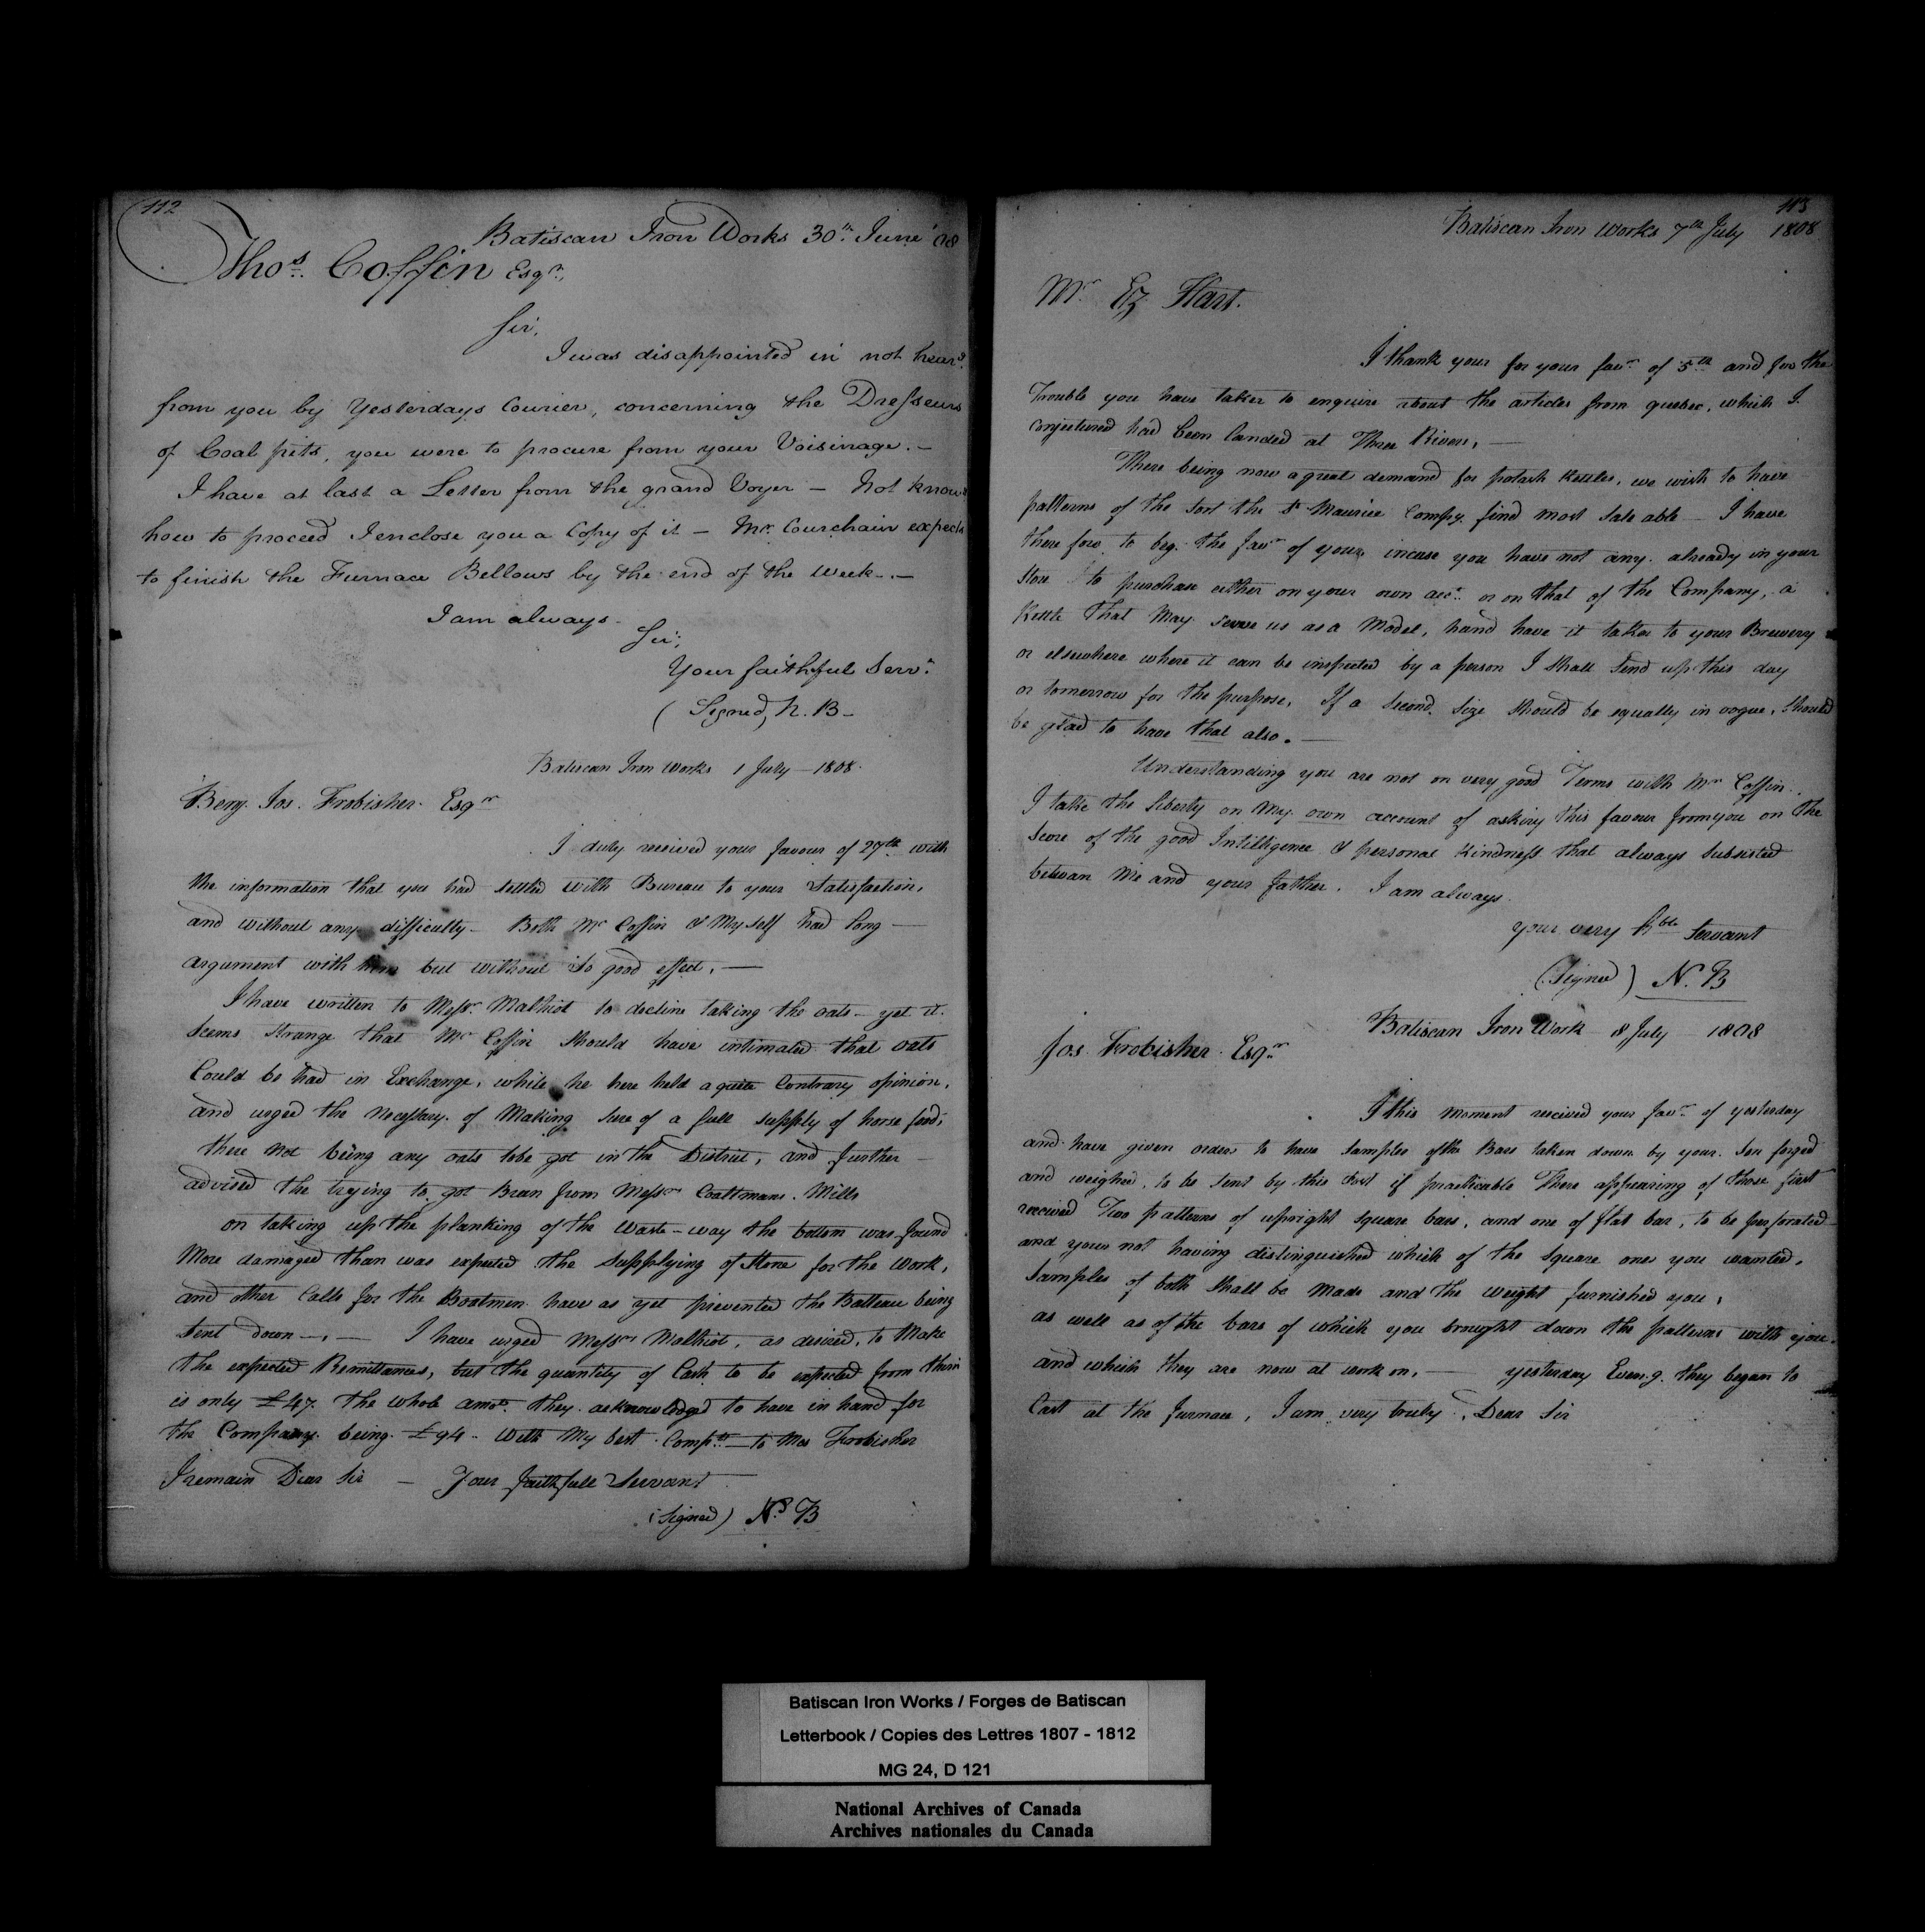 112
Batiscan Iron Works 30th June '08
Thos. Coffin Esqr.,
Sir,
I was disappointed in not hearg.
from you by Yesterdays Courier, concerning the Dresseurs
of Coal pits, you were to procure from your Voisinage. —
I have at last a Letter from the grand Voyer — Not knowg
how to proceed I enclose you a Copy of it — Mr. Courchain expects
to finish the Furnace Bellows by the end of the Week —. —
I am always.
Sir,
Your faithful Servt.
(Signed, N. B —
Batiscan Iron Works 1 July — 1808.
Benj. Jos. Frobisher. Esqr
I duly received your favour of 27th with
the information that you had settled with Bureau to your Satisfaction,
and without any difficulty — Both Mr Coffin & My self had long —
argument with him but without so good effect, —
I have written to Messr. Malhiot to decline taking the oats — yet it
Seems Strange that Mr Coffin Should have intimated that oats
Could be had in Exchange, while he here held a quite Contrary opinion,
and urged the necessary of Making Sure of a full Supply of horse food,
there not being any oats to be got in the District, and further —
advised the trying to get Bran from Messrs Coaltmans Mills
on taking up the planking of the Waste-way the bottom was found
More damaged than was expected the Supplying of Stone for the Work,
and other Calls for the Boatmen have as yet prevented the Batteau being
Sent down —, — I have urged Messrs Malhiot, as desired, to Make
the expected Remittances, but the quantity of Cash to be expected from them
is only £47. the whole amot. they acknowledged to have in hand for
the Company being £94 — With My best Compts — to Mrs Frobisher
I remain Dear Sir — Your faithfull Servant
(Signed) N. B
113
Batiscan Iron Works 7th July 1808
Mr. Ez Hart.
I thank your for your favr. of 5th and for the
Trouble you have taken to enquire about the articles from quebec, which I
conjectured had been landed at Three Rivers, —
There being now a great demand for potash Kettles, we wish to have
patterns of the Sort the St Maurice Compy. find most Sale able — I have
there fore to beg the favr of your, incase you have not any already in your
Store to purchase either on your own acct. or on that of the Company, a
Kettle That May Serve us as a Model, hand have it taken to your Brewery
or elsewhere where it can be inspected by a person I Shall Send up this day
or tomorrow for the purpose, If a Second Size Should be equally in vogue, Should
be glad to have that also. —
Understanding you are not on very good Terms with Mr Coffin.
I take the liberty on My own account of asking this favour from you on the
Score of the good Intilligence & personal Kindness that always Subsisted
betwean Me and your father. I am always.
your very Hble Servant
(Signed) N. B
Batiscan Iron Work 8 July 1808
Jos. Frobisher. Esqr
I this moment received your favr. of yesterday
and have given orders to have Samples of the Bars taken down by your Son forged
and weighed, to be Sent by this Post if practicable There appearing of those first
received Two patterns of upright Square bars, and one of flat bar, to be perforated —
and your not having distinguished which of the Square ones you wanted,
Samples of both Shall be Made and the weight furnished you,
as well as of the bars of which you brought down the patterns with you.
and which they are now at work on, — yesterday Eveng. they began to
Cast at the furnace, I am very truly, Dear Sir
Batiscan Iron Works / Forges de Batiscan
Letterbook / Copies des Lettres 1807 - 1812
MG 24, D 121
National Archives of Canada
Archives nationales du Canada